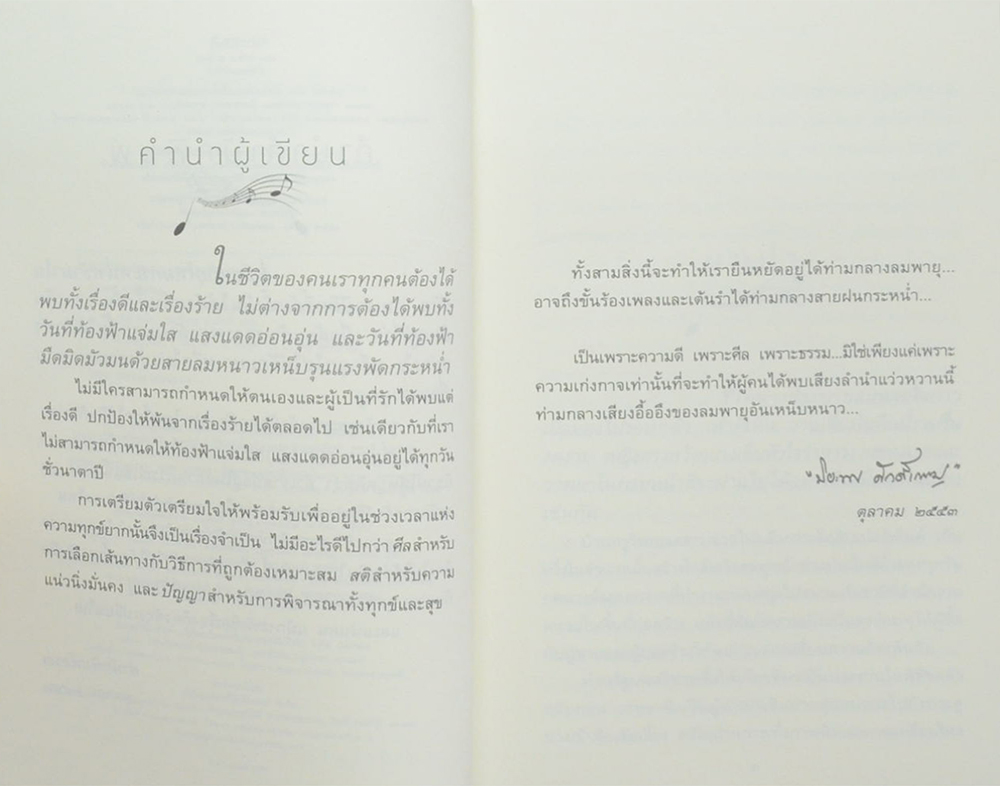 คำนำผู้เขียน
ในชีวิตของคนเราทุกคนต้องได้
พบทั้งเรื่องดีและเรื่องร้าย ไม่ต่างจากการต้องได้พบทั้ง
วันที่ท้องฟ้าแจ่มใส แสงแดดอ่อนอุ่น และวันที่ท้องฟ้า
มืดมิดมัวมนด้วยสายลมหนาวเหน็บรุนแรงพัดกระหน่ำ
ไม่มีใครสามารถกำหนดให้ตนเองและผู้เป็นที่รักได้พบแต่
เรื่องดี ปกป้องให้พ้นจากเรื่องร้ายได้ตลอดไป เช่นเดียวกับที่เรา
ไม่สามารถกำหนดให้ท้องฟ้าแจ่มใส แสงแดดอ่อนอุ่นอยู่ได้ทุกวัน
ชั่วนาตาปี
การเตรียมตัวเตรียมใจให้พร้อมรับเพื่ออยู่ในช่วงเวลาแห่ง
ความทุกข์ยากนั้นจึงเป็นเรื่องจำเป็น ไม่มีอะไรดีไปกว่า ศีลสำหรับ
การเลือกเส้นทางกับวิธีการที่ถูกต้องเหมาะสม สติสำหรับความ
แน่วนิ่งมั่นคง และปัญญาสำหรับการพิจารณาทั้งทุกข์และสุข
ทั้งสามสิ่งนี้จะทำให้เรายืนหยัดอยู่ได้ท่ามกลางลมพายุ...
อาจถึงขั้นร้องเพลงและเต้นรำได้ท่ามกลางสายฝนกระหน่ำ...
เป็นเพราะความดี เพราะศีล เพราะธรรม...มิใช่เพียงแค่เพราะ
ความเก่งกาจเท่านั้นที่จะทำให้ผู้คนได้พบเสียงลำนำแว่วหวานนี้
ท่ามกลางเสียงอื้ออึงของลมพายุอันเหน็บหนาว...
ตุลาคม ๒๕๕๓